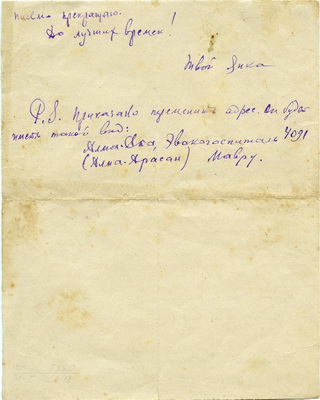 письмо прекращаю.
До лучших времен!
Твой Янка
P.S. Приказано переменить адрес. Он будет
иметь такой вид:
Алма-Ата, Эвакогоспиталь 4091
(Алма-Арасан) Мавру.